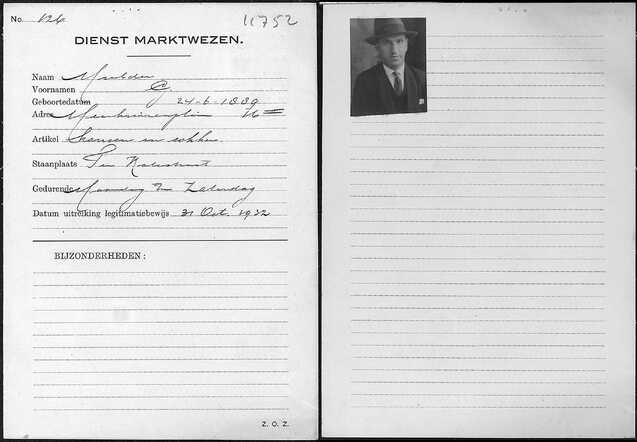 No. 126
11752
DIENST MARKTWEZEN.
Naam Mulder
Voornamen G
Geboortedatum 24-6-1889
Adres 16
Artikel kousen en sokken.
Staanplaats Ten Katestraat
Gedurende Maandag t/m Zaterdag
Datum uitreiking legitimatiebewijs 31 Oct. 1932
BIJZONDERHEDEN:
Z. O. Z.